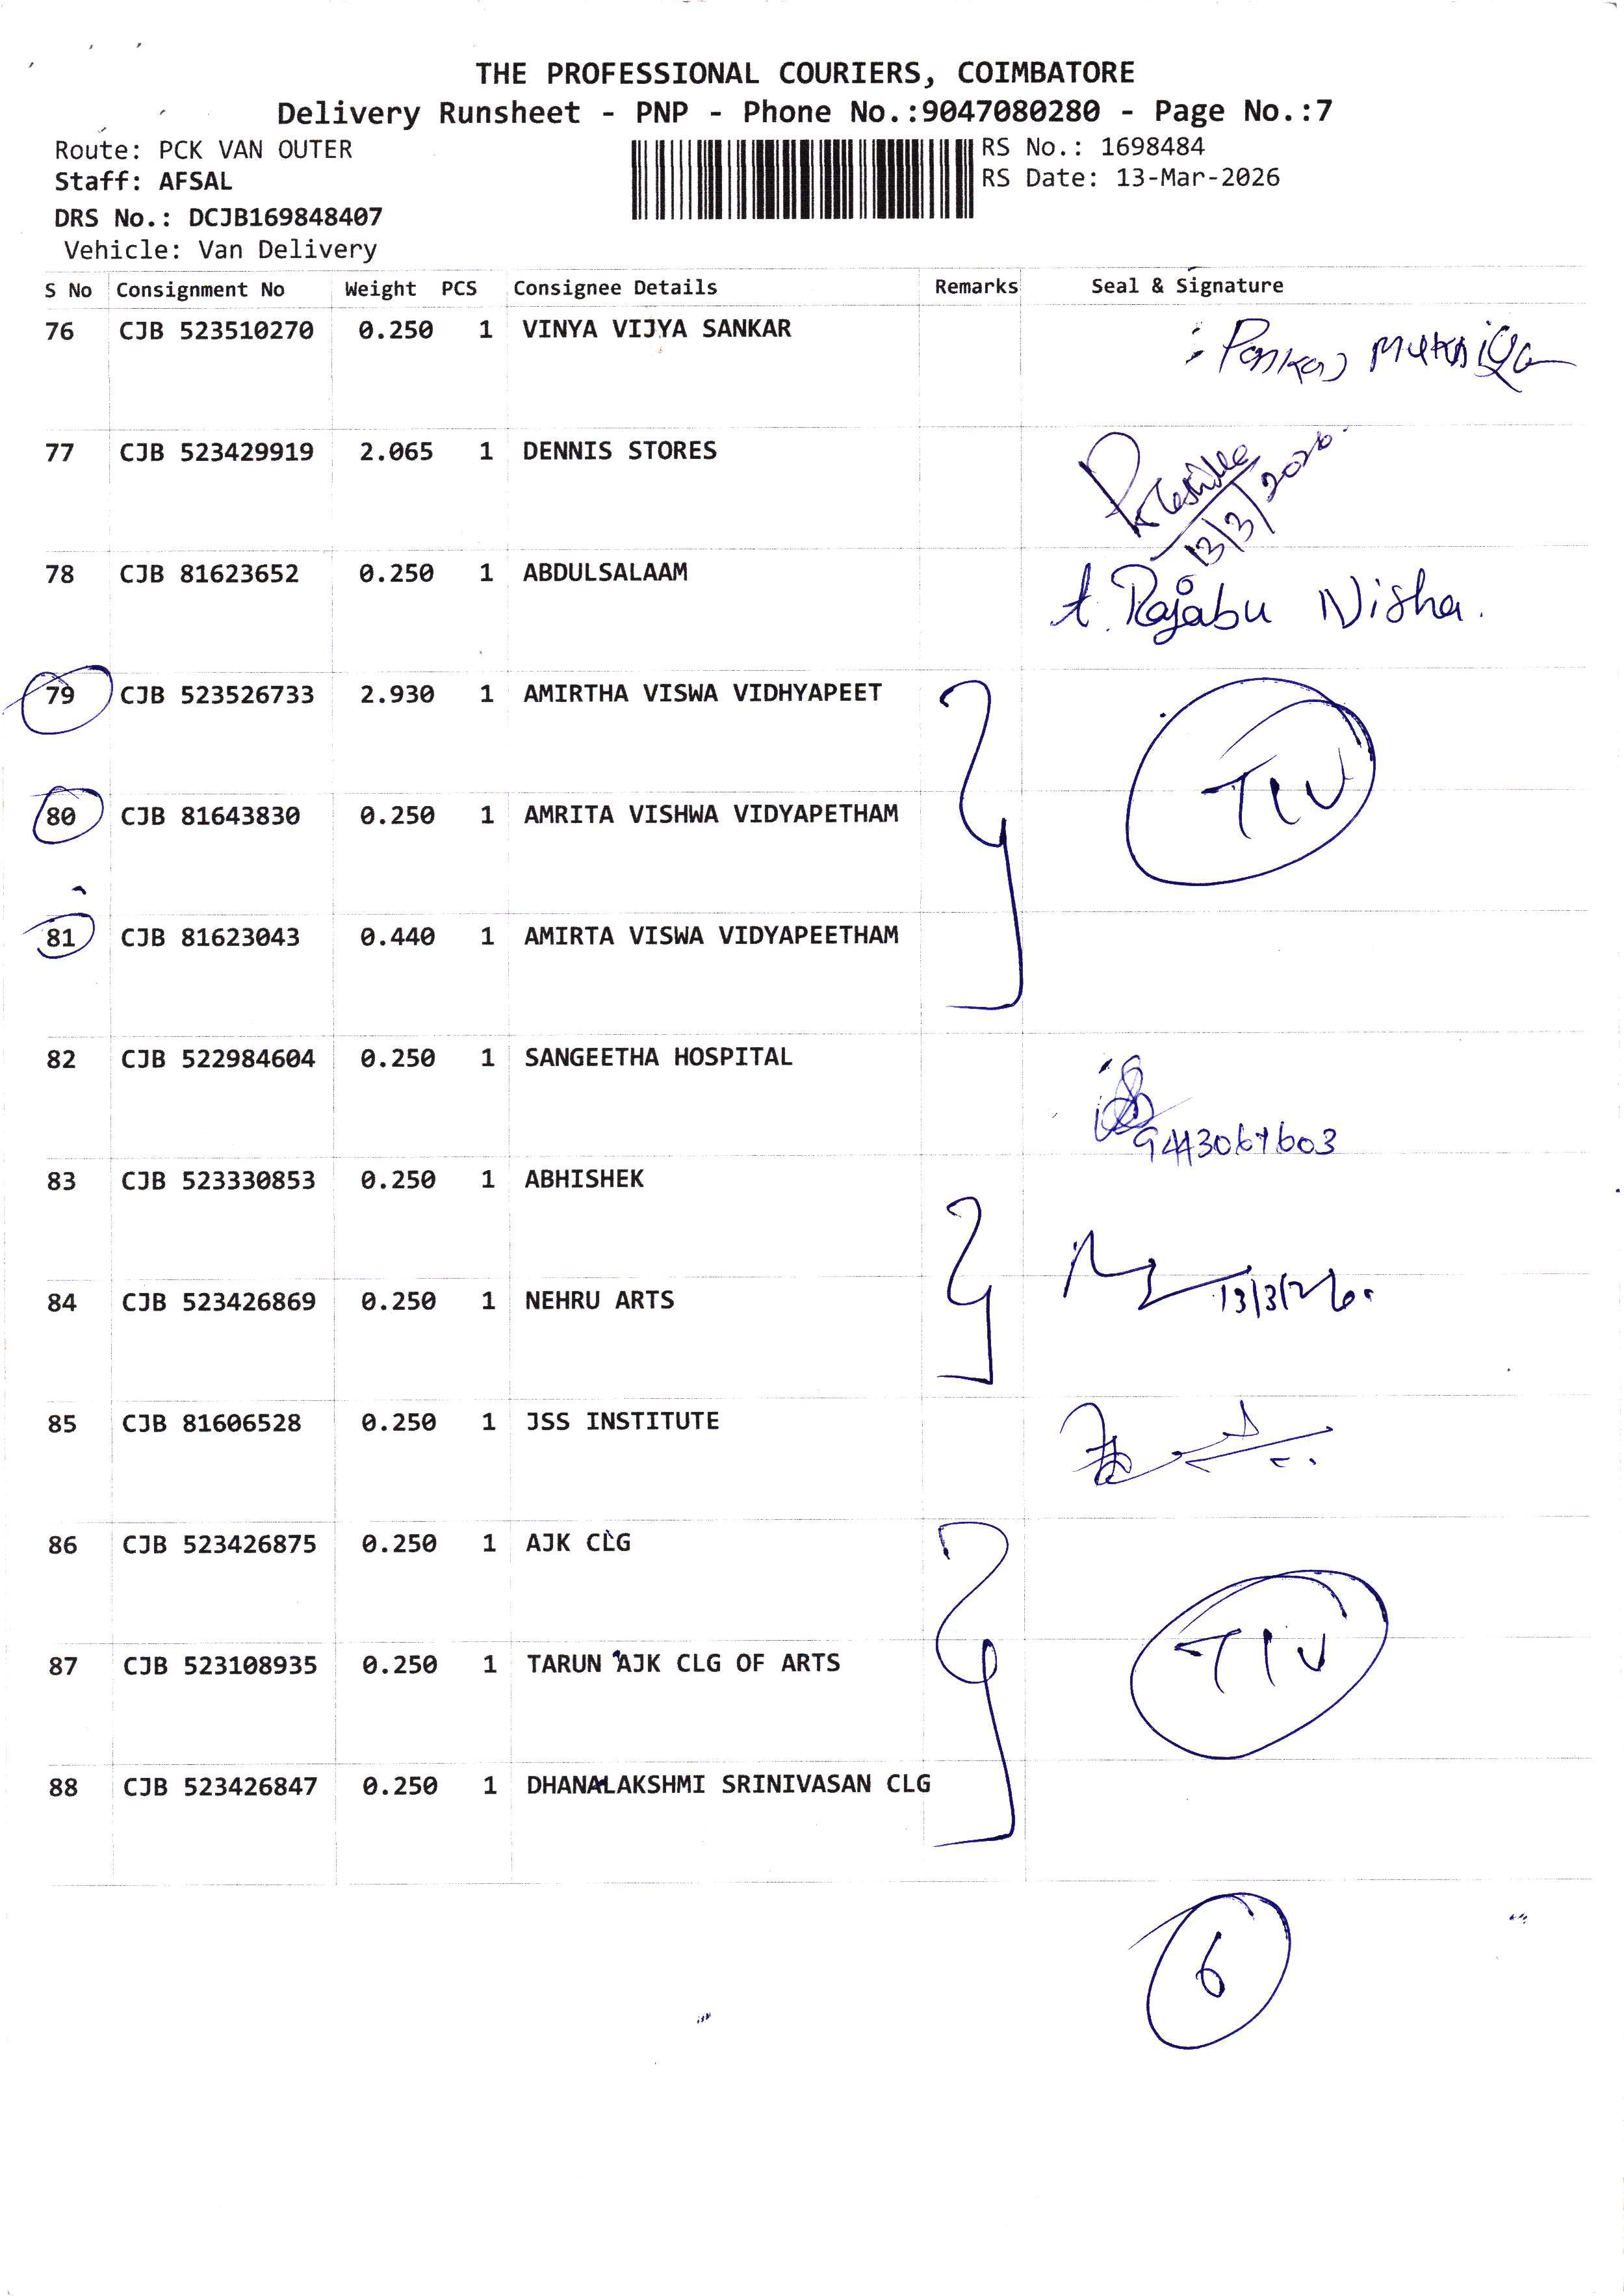 THE PROFESSIONAL COURIERS, COIMBATORE
Delivery Runsheet - PNP - Phone No.:9047080280 - Page No.:7
Route: PCK VAN OUTER
RS No.: 1698484
Staff: AFSAL
RS Date: 13-Mar-2026
DRS No.: DCJB169848407
Vehicle: Van Delivery
S No Consignment No Weight PCS Consignee Details Remarks Seal & Signature
76 CJB 523510270 0.250 1 VINYA VIJYA SANKAR
77 CJB 523429919 2.065 1 DENNIS STORES
13/3/2026
78 CJB 81623652 0.250 1 ABDULSALAAM A. Rajabu Nisha.
79 CJB 523526733 2.930 1 AMIRTHA VISWA VIDHYAPEET
80 CJB 81643830 0.250 1 AMRITA VISHWA VIDYAPETHAM
81 CJB 81623043 0.440 1 AMIRTA VISWA VIDYAPEETHAM
82 CJB 522984604 0.250 1 SANGEETHA HOSPITAL
83 CJB 523330853 0.250 1 ABHISHEK
84 CJB 523426869 0.250 1 NEHRU ARTS 13/3/26.
85 CJB 81606528 0.250 1 JSS INSTITUTE
86 CJB 523426875 0.250 1 AJK CLG
87 CJB 523108935 0.250 1 TARUN AJK CLG OF ARTS
88 CJB 523426847 0.250 1 DHANALAKSHMI SRINIVASAN CLG
6